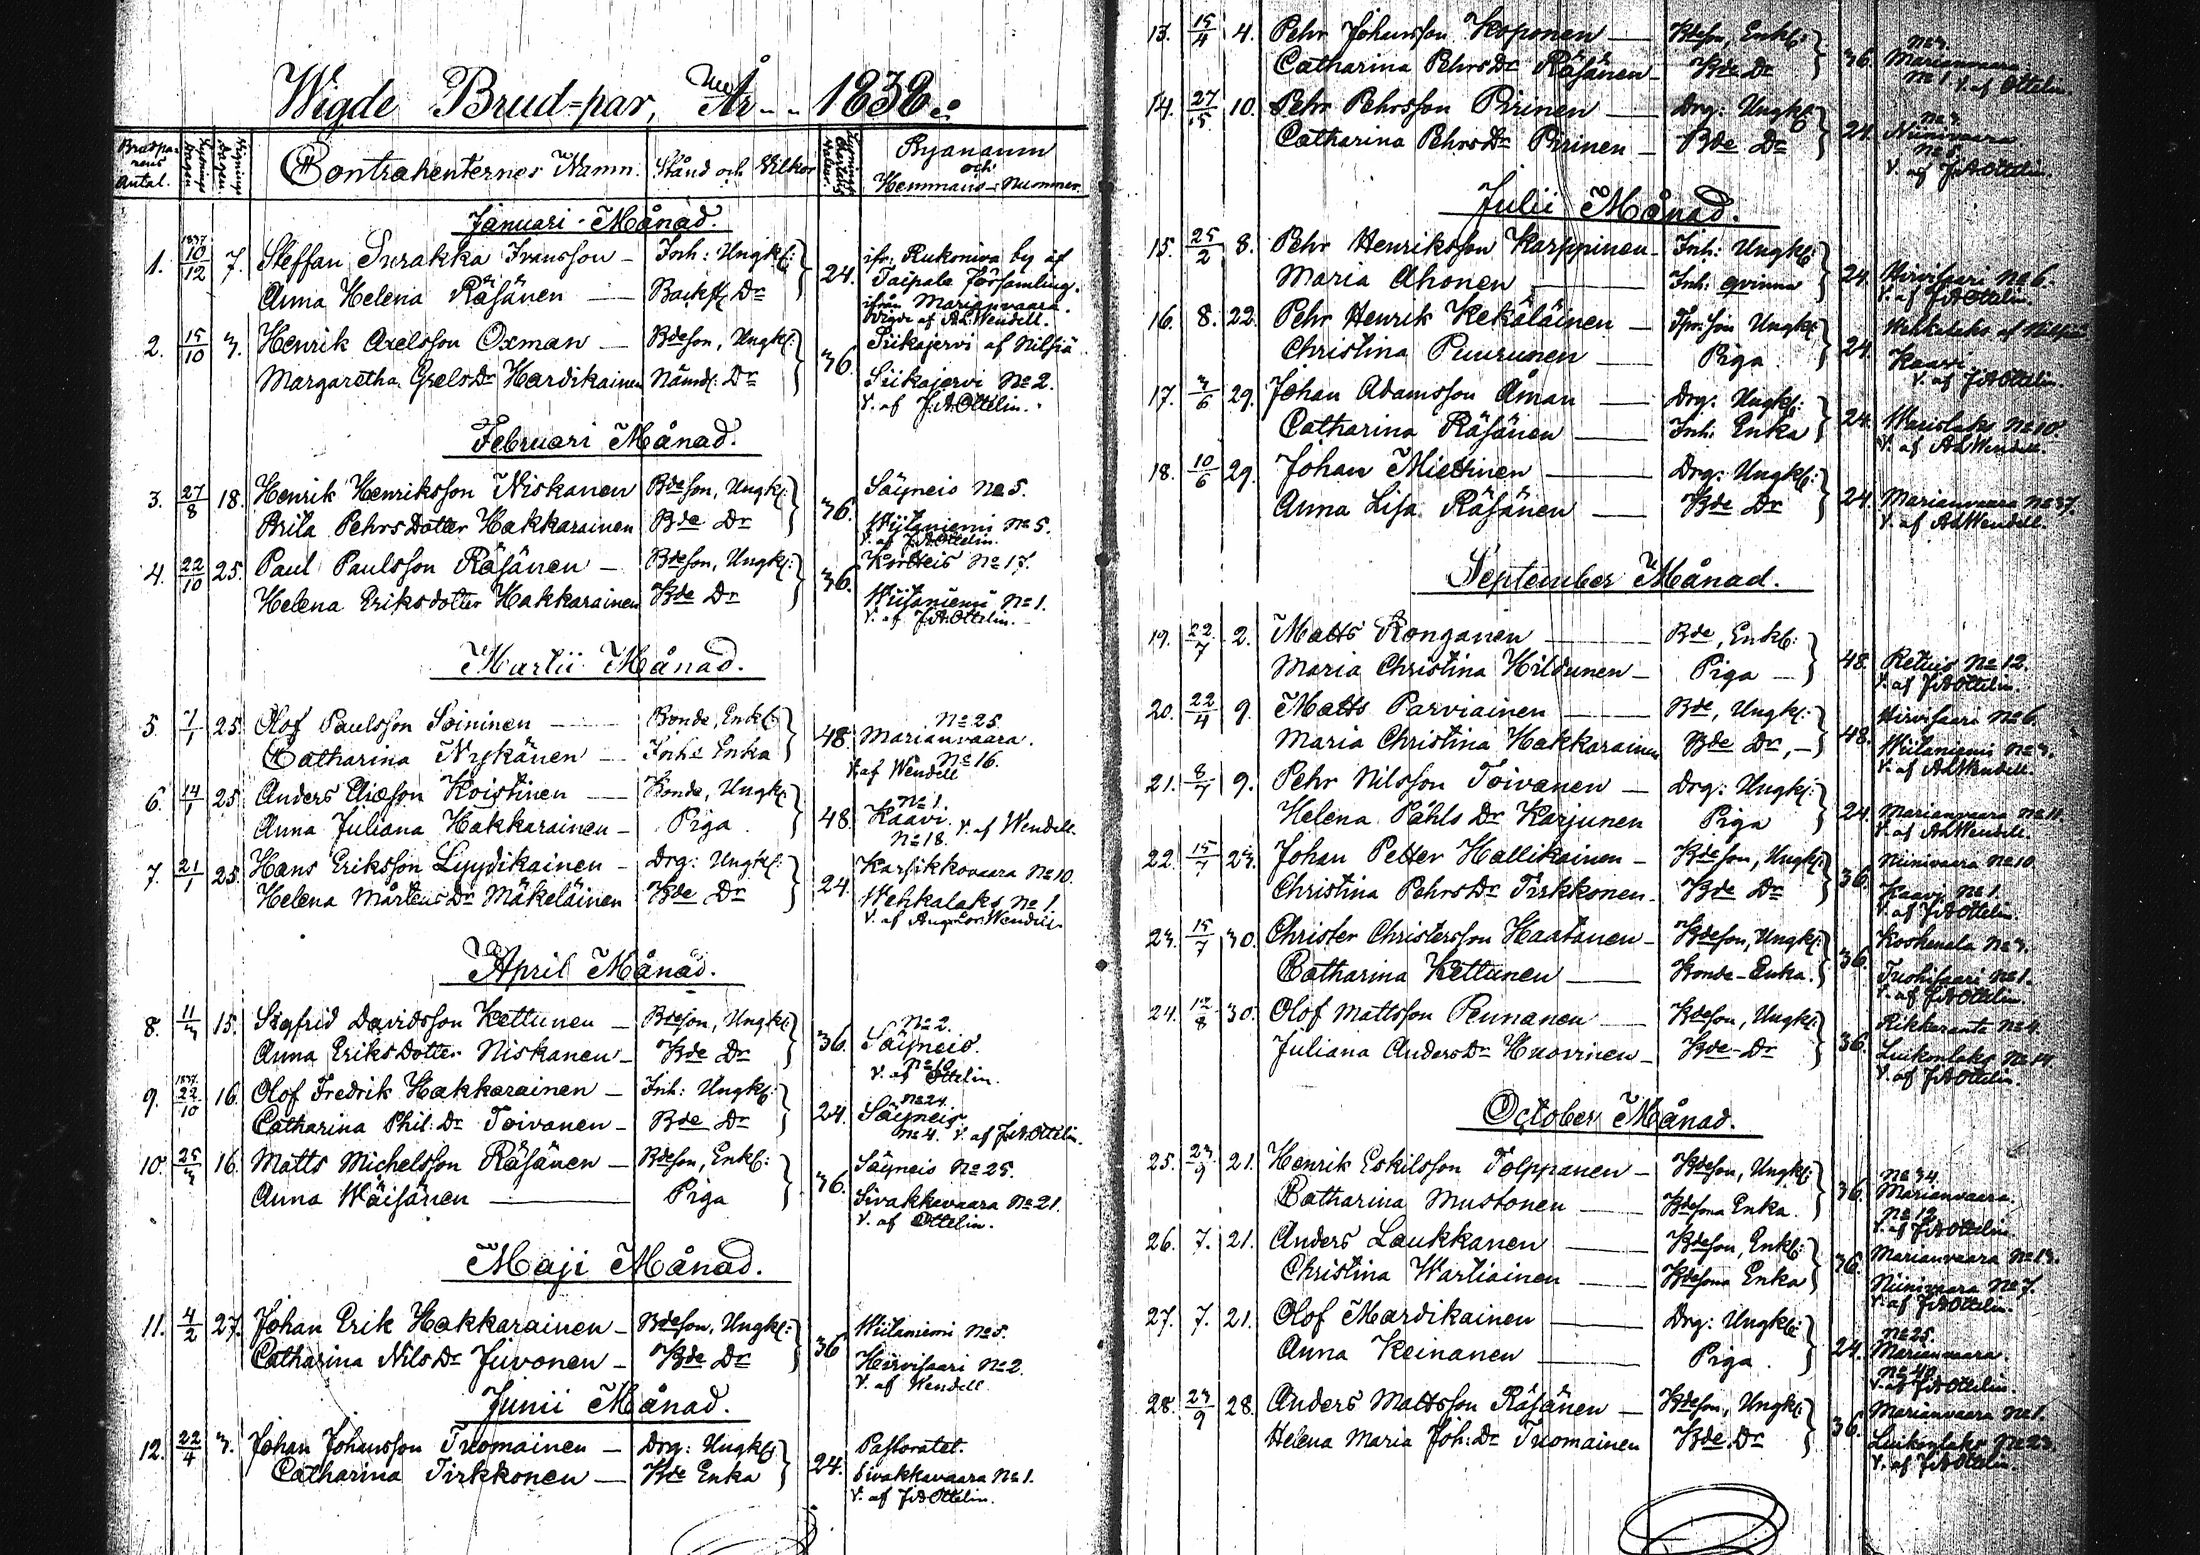 Wigde Brud=par, År 1838.
Brudparens Antal. Contrahenternes Namn. Stånd och Wilkor Byanamn och Hemmans-Nummer.
Januari-Månad.
1. 1837 10/12 7. Steffan Surakka Ivansson — Inh: Ungkl: 24. ifr. Rukoniva by af
Taipale församling.
Anna Helena Räsänen — Backst Dr ifrån Marianvaara.
Vigde af Ad. Wendell.
2. 15/10 3. Henrik Axelsson Oxman — Bdeson, Ungkl: 36. Siikajervi af Nilsiä
Margaretha Grels Dr Hardikainen Nämd: Dr Siikajervi No 2.
V. af J.A.Ottelin.
Februari Månad.
3. 27/8 18. Henrik Henriksson Niskanen Bdeson, Ungkl: 36. Säyneis No 5.
Brita Pehrs Dotter Hakkarainen Bde Dr Wiitaniemi No 5.
V. af J.A.Ottelin.
4. 22/10 25. Paul Paulsson Räsänen — Bdeson, Ungkl: 36. Kortteis No 17.
Helena Eriksdotter Hakkarainen Bde Dr Wiitaniemi No 1.
V. af J.A.Ottelin.
Martii Månad.
5. 7/1 25. Olof Paulsson Soininen — Bonde, Enkl: 48. No 25
Marianvaara.
Catharina Nykänen — Inhs Enka No 16.
V. af Wendell
6. 14/1 25. Anders Eliæson Koistinen — Bonde, Ungkl: 48. No 1.
Kaavi.
Anna Juliana Hakkarainen — Piga No 18. V. af Wendell.
7. 21/1 25. Hans Eriksson Lyydikainen — Drg: Ungkl: 24. Karsikkovaara No 10.
Helena Mårtens Dr Mäkeläinen Bde Dr Wehkalaks No 1.
V. af Wendell.
April Månad.
8. 11/3 15. Sigfrid Davidsson Kettunen — Bdeson, Ungkl: 36. No 2.
Säyneis.
Anna Eriks Dotter Niskanen — Bde Dr No 10.
V. af Ottelin.
9. 1837 22/10 16. Olof Fredrik Hakkarainen — Inh: Ungkl: 24. No 24.
Säyneis
Catharina Phil: Dr Toivanen — Bde Dr No 4. V. af J.A.Ottelin.
10. 25/3 16. Matts Michelsson Räsänen — Bdeson, Enkl: 36. Säyneis No 25.
Anna Wäisänen — Piga Sivakkavaara No 21.
V. af Ottelin.
Maji Månad.
11. 4/2 27. Johan Erik Hakkarainen — Bdeson, Ungkl: 36 Wiitaniemi No 5.
Catharina Nils Dr Juvonen — Bde Dr Hirvisaari No 2.
V. af Wendell.
Junii Månad.
12. 22/4 3. Johan Johansson Tuomainen — Drg: Ungkl 24. Pastoratet.
Catharina Tirkkonen — Bde Enka Sivakkavaara No 1.
V. af J.A.Ottelin.
13. 15/4 4. Pehr Johansson Koponen — Bdeson, Enkl: 36. No 3.
Marianvaara
Catharina Pehrs Dr Räsänen — Bde Dr No 1 V. af Ottelin.
14. 27/5 10. Pehr Pehrsson Pirinen — Drg: Ungkl 24. No 3.
Niinivaara
Catharina Pehrs Dr Pirinen — Bde Dr No 5.
V. af J.A.Ottelin.
Julii Månad.
15. 25/2 8. Pehr Henriksson Karppinen — Inh: Ungkl 24.
Maria Ahonen — Inh: qvinna Hirvisaari No 6.
V. af J.A.Ottelin.
16. 8. 22. Pehr Henrik Kekäläinen — Ungkl: 24. Wehkalaks af Nilsiä
Christina Puurunen — Piga. Kaavi.
V. af J.A.Ottelin.
17. 3/6 29. Johan Adamsson Åman — Drg: Ungkl: 24.
Catharina Räsänen — Inh: Enka Wuoislaks No 10.
V. af Ad.Wendell.
18. 10/6 29. Johan Miettinen — Drg: Ungkl: 24.
Anna Lisa Räsänen — Bde Dr Marianvaara No 37.
V. af Ad.Wendell.
September Månad.
19. 22/7 2. Matts Ronganen — Bde, Enkl: 48.
Maria Christina Hildunen — Piga — Retuis No 12.
V. af J.A.Ottelin.
20. 22/4 9. Matts Parviainen — Bde, Ungkl: 48. Hirvisaari No 6.
Maria Christina Hakkarainen Bde Dr, — Wiitaniemi No 3.
V. af Ad.Wendell.
21. 8/7 9. Pehr Nilsson Toivanen — Drg: Ungkl: 24.
Helena Påhls Dr Karjunen Piga Marianvaara No 11.
V. af Ad.Wendell.
22. 15/7 23. Johan Petter Hallikainen — Bdeson, Ungkl: 36. Niinivaara No 10.
Christina Pehrs Dr Tirkkonen. Bde Dr Kaavi No 1.
V. af J.A.Ottelin.
23. 15/7 30. Christer Christersson Haatanen — Bdeson, Ungkl: 36. Koskenala No 3.
Catharina Kettunen — Bonde-Enka. Tuohisaari No 1.
V. af J.A.Ottelin.
24. 12/8 30. Olof Mattsson Pennanen — Bdeson, Ungkl: 36. Rikkaranta No 4.
Juliana Anders Dr Huovinen — Bde Dr Luikonlaks No 14.
V. af J.A.Ottelin.
October Månad.
25. 23/9 21. Henrik Eskilsson Tolppanen — Bdeson, Ungkl: 36. No 34.
Marianvaara.
Catharina Mustonen — Bdesons Enka. No 12.
V. af J.A.Ottelin.
26. 7. 21. Anders Laukkanen — Bdeson, Enkl: 36. Marianvaara No 13.
Christina Wartiainen — Bdesons Enka Niinivaara No 7.
V. af J.A.Ottelin.
27. 7. 21. Olof Mardikainen — Drg: Ungkl: 24. No 25.
Marianvaara.
Anna Keinanen — Piga.
V. af J.A.Ottelin.
28. 23/9 28. Anders Mattsson Räsänen — Bdeson, Ungkl: 36. Marianvaara No 1.
Helena Maria Joh: Dr Tuomainen Bde Dr Luikonlaks No 23.
V. af J.A.Ottelin.